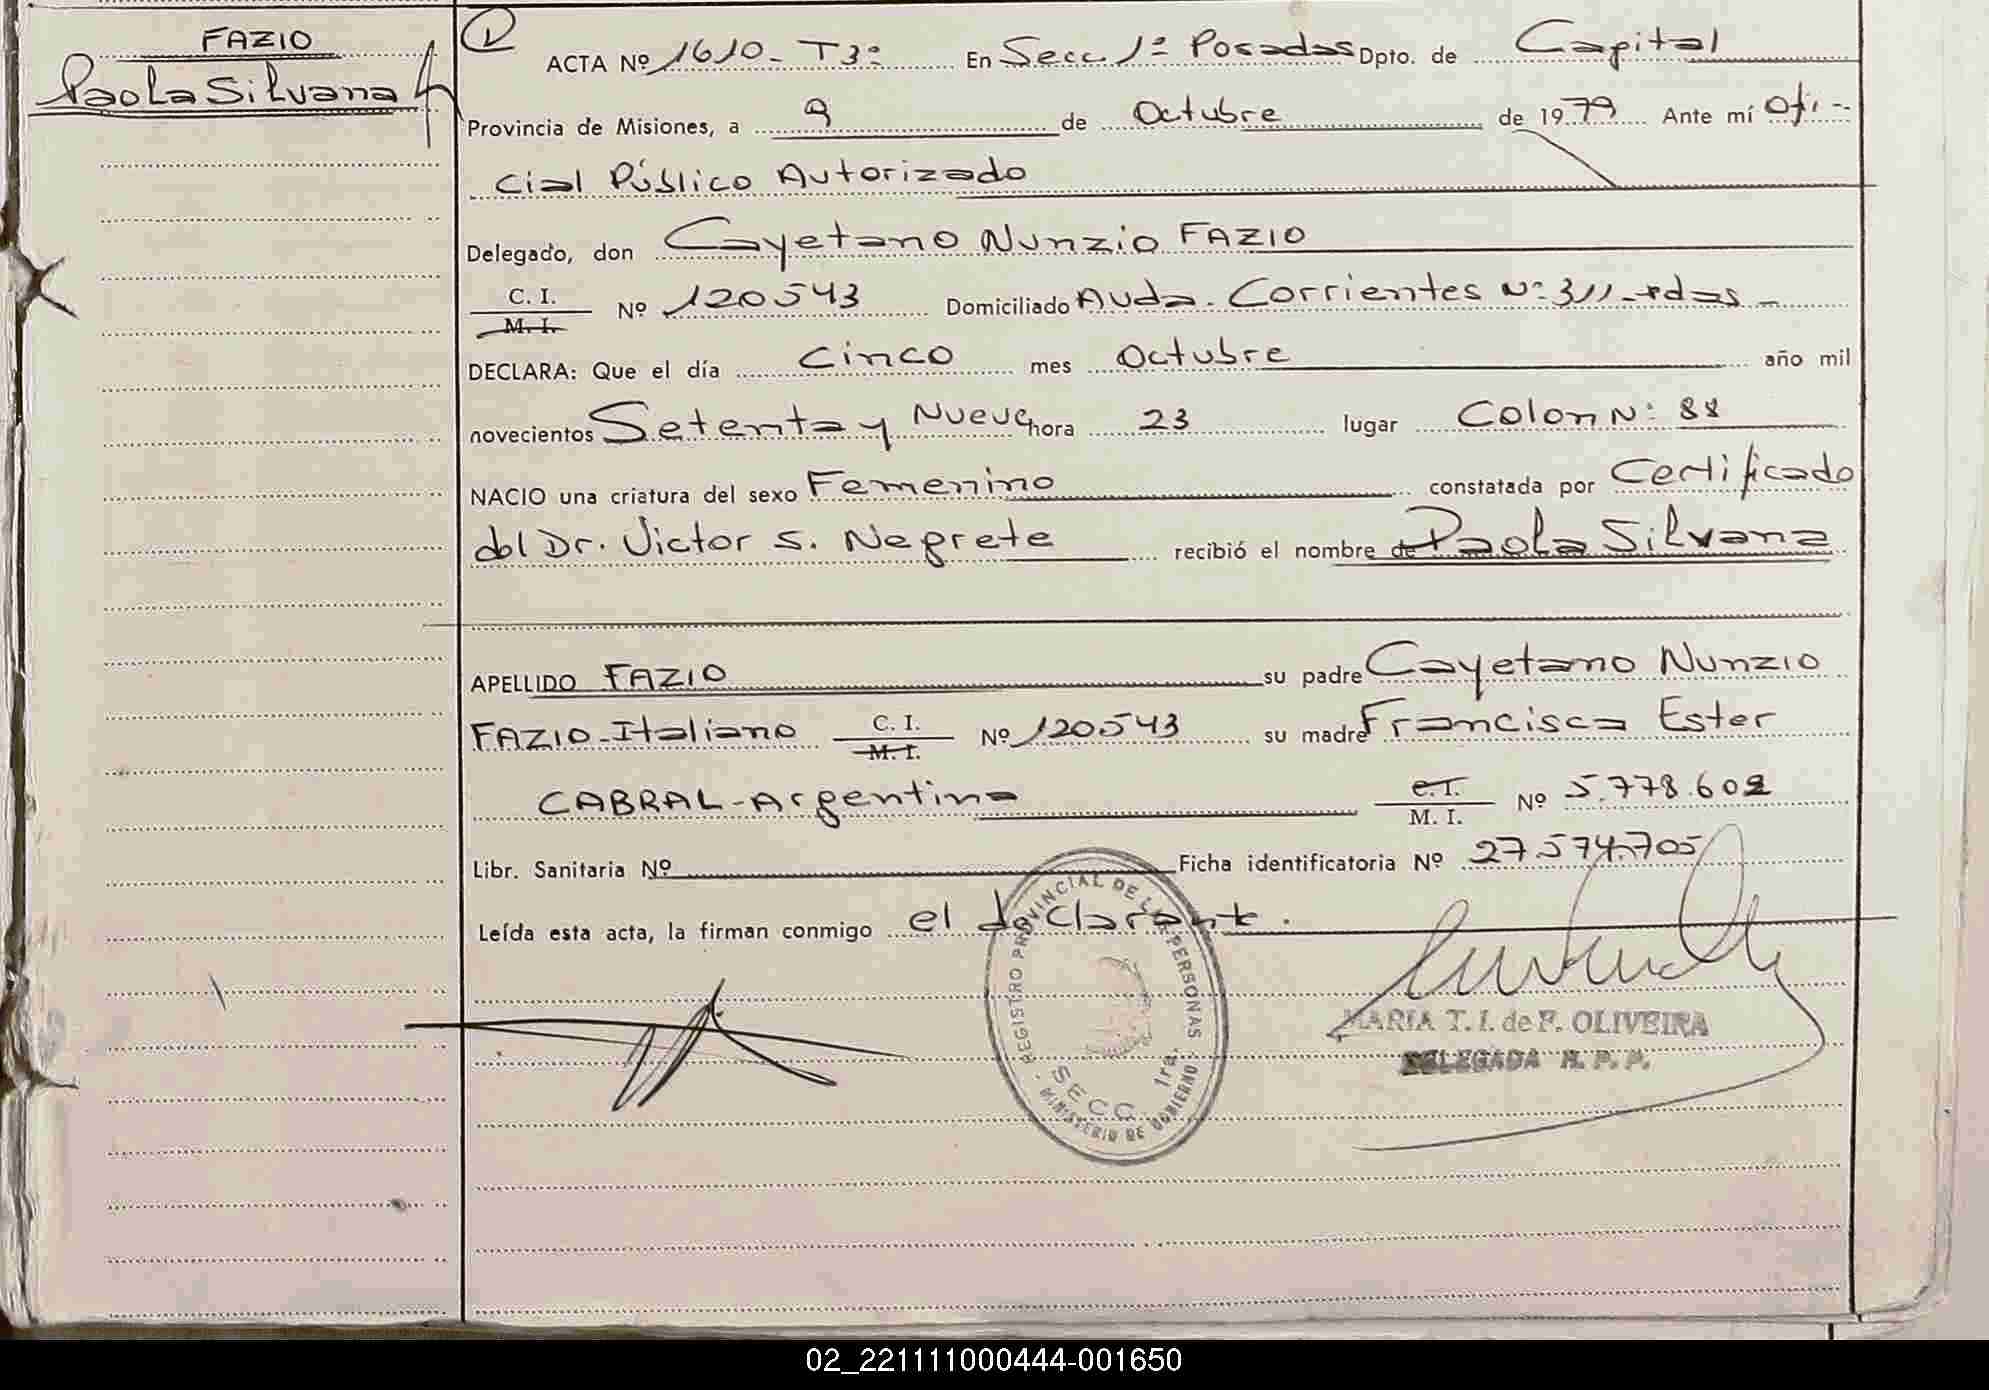 FAZIO
Paola Silvana
ACTA Nº 1610 - T3º En Secc 1º Posadas Dpto. de Capital
Provincia de Misiones, a 9 de Octubre de 1979 Ante mí Ofi-
cial Público Autorizado
Delegado, don Cayetano Nunzio FAZIO
C. I.
M. I.
Nº 120543 Domiciliado Avda. Corrientes Nº 311 - Pdas -
DECLARA: Que el día Cinco mes Octubre año mil
novecientos Setenta y Nueve hora 23 lugar Colon Nº 88
NACIO una criatura del sexo Femenino constatada por Certificado
del Dr. Victor S. Negrete recibió el nombre de Paola Silvana
APELLIDO FAZIO su padre Cayetano Nunzio
FAZIO - Italiano C. I. M. I. Nº 120543 su madre Francisca Ester
CABRAL - Argentina C. I. M. I. Nº 5.778.602
Libr. Sanitaria Nº Ficha identificatoria Nº 27.574.705
Leída esta acta, la firman conmigo el declarante.
REGISTRO PROVINCIAL DE LAS PERSONAS
SECC. 1ra.
MINISTERIO DE GOBIERNO
MARIA T. I. de F. OLIVEIRA
DELEGADA R. P. P.
02_221111000444-001650